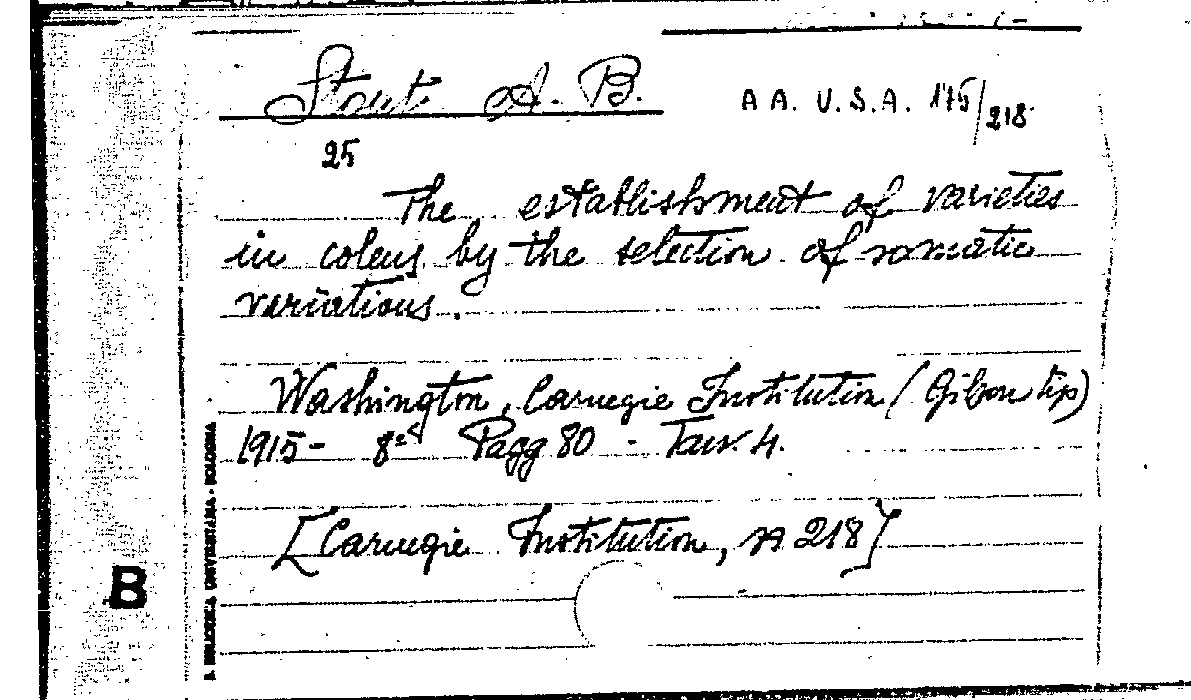 Stout A. B.
A A. U.S.A. 175/218
25
The establishment of varieties
in coleus by the selection of somatic
variations.
Washington, Carnegie Institution (Gibson tip)
1915 - 8° Pagg 80 - Tav. 4.
[Carnegie Institution, n 218]
B
UNIVERSITARIA - BOLOGNA